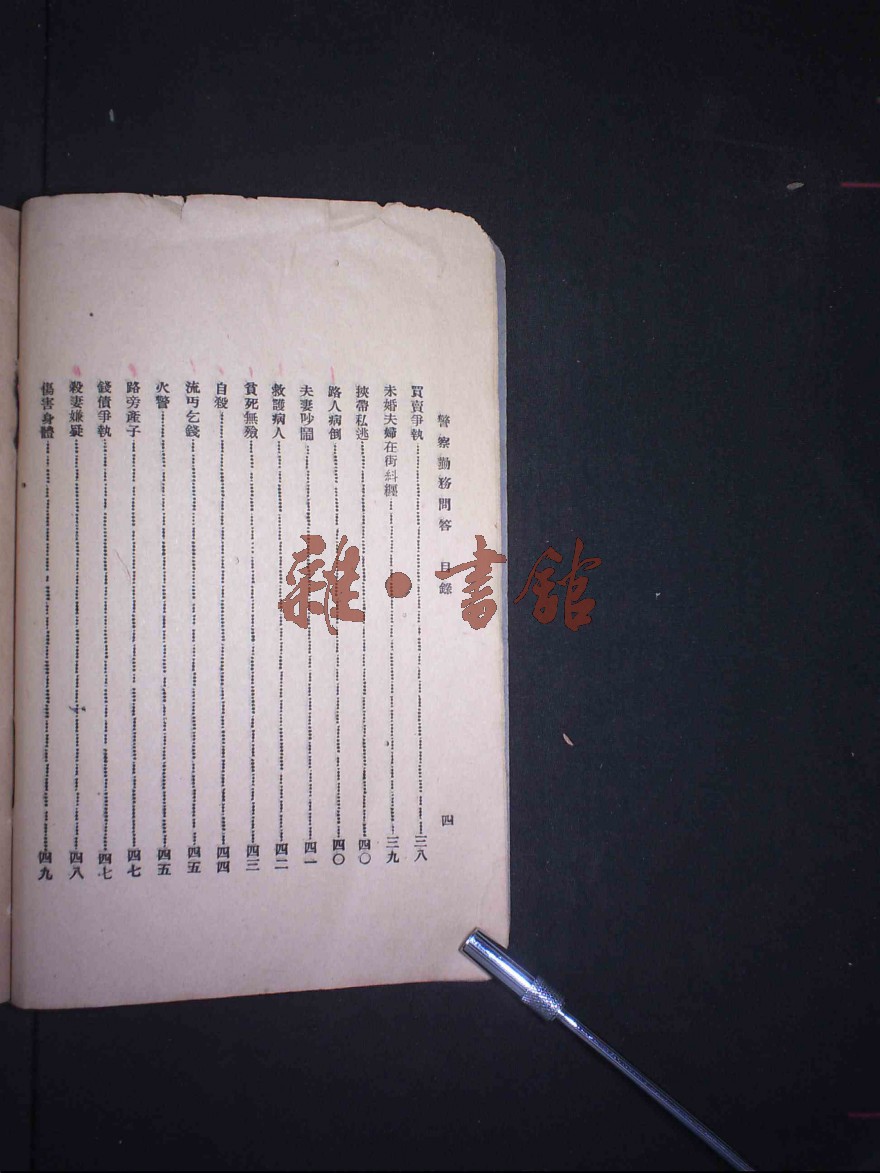 警察勤務問答　目錄　四
買賣爭執……三八
未婚夫婦在街糾纏……三九
挾帶私逃……四〇
路人病倒……四〇
夫妻吵鬧……四一
救護病人……四二
貧死無殮……四三
自殺……四四
流丐乞錢……四五
火警……四五
路旁產子……四七
錢債爭執……四七
殺妻嫌疑……四八
傷害身體……四九
雜·書館